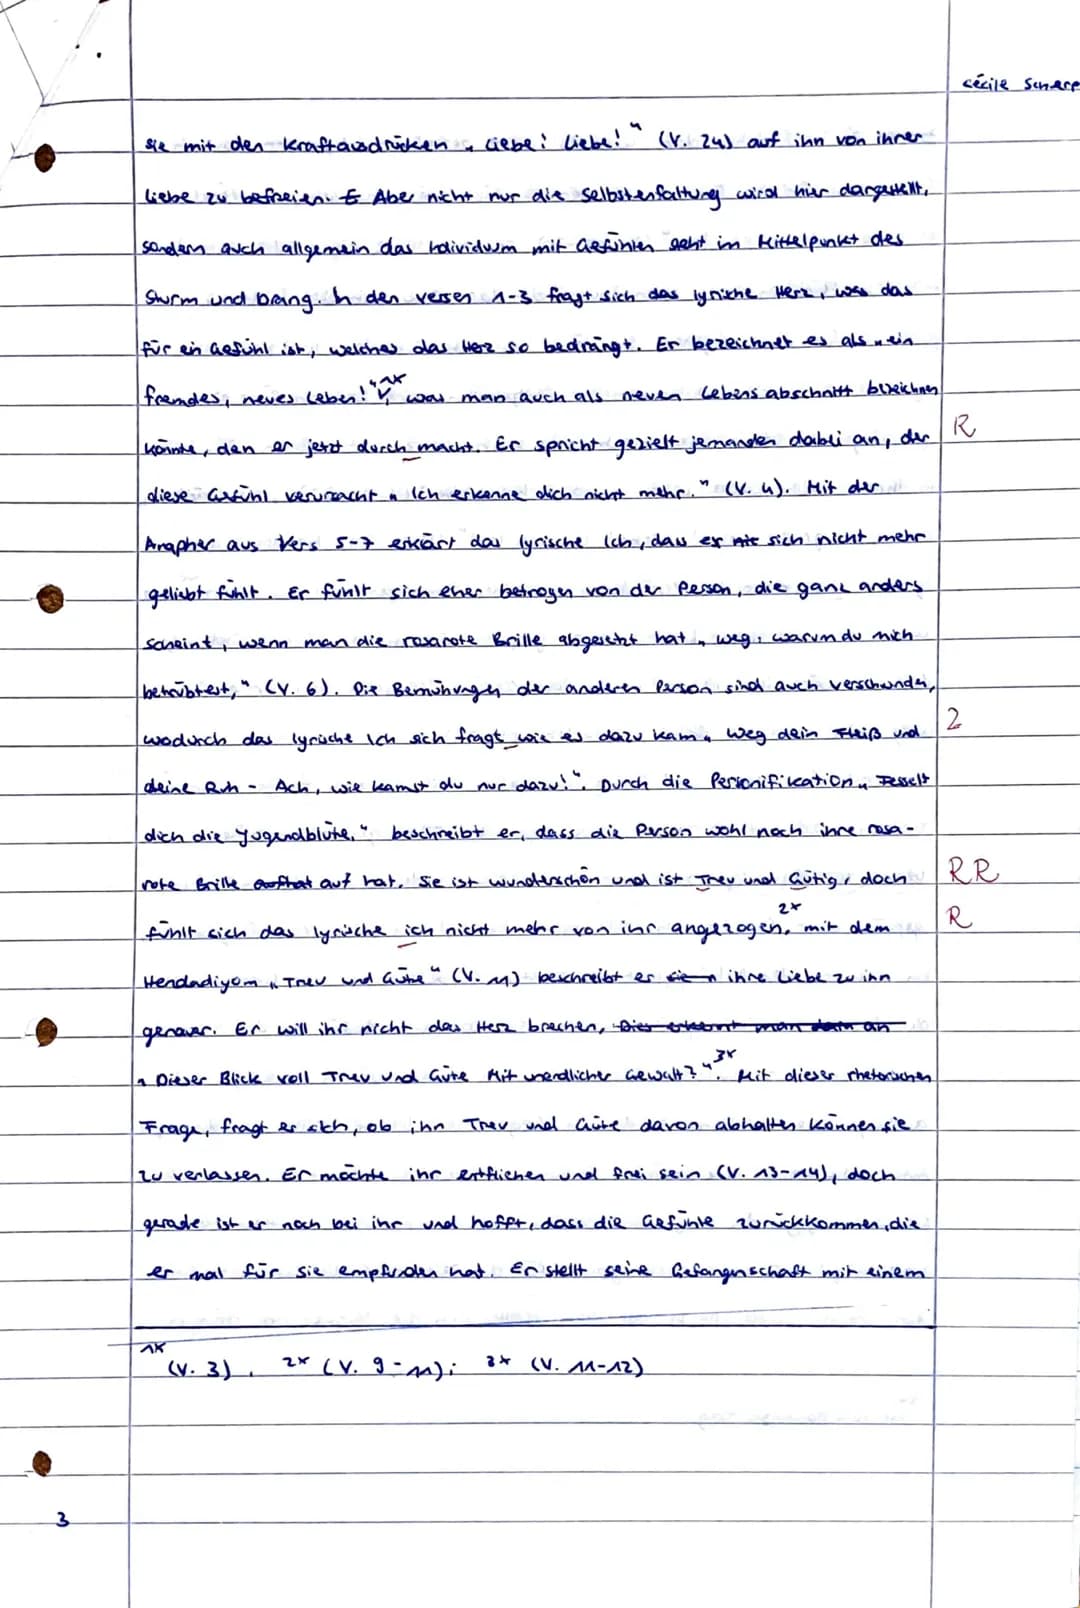 Cécile
sie mit den Kraftausdrücken „Liebe! Liebe!" (V. 24) auf ihn von ihrer
Liebe zu befreien. Aber nicht nur die Selbstenfaltung wird hier dargestellt,
sondern auch allgemein das Individuum mit Gefühlen geht im Mittelpunkt des
Sturm und Drang. In den Versen 1-3 fragt sich das lyrische Herz, was das
für ein Gefühl ist, welches das Herz so bedrängt. Er bezeichnet es als „ein
fremdes, neues Leben!" 1x, was man auch als neuen Lebensabschnitt bezeichnen
könnte, den er jetzt durch macht. Er spricht gezielt jemanden dabei an, der R
diese Gefühl verursacht „Ich erkenne dich nicht mehr." (V. 4). Mit der
Anapher aus Vers 5-7 erklärt das lyrische Ich, dass es sich nicht mehr
geliebt fühlt. Er fühlt sich eher betrogen von der Person, die ganz anders
scheint, wenn man die rosarote Brille abgesetzt hat „weg, warum du mich
betrübtest," (V. 6). Die Bemühungen der anderen Person sind auch verschwunden,
wodurch das lyrische Ich sich fragt wie es dazu kam „Weg dein Fleiß und 2
deine Ruh - Ach, wie kamst du nur dazu!". Durch die Personifikation „Fesselt
dich die Jugendblüte," beschreibt er, dass die Person wohl noch ihre rosa-
rote Brille aufhat auf hat. Sie ist wunderschön und ist Treu und Gütig, doch RR
fühlt sich das lyrische ich nicht mehr von ihr angezogen, 2x mit dem R
Hendadiyom „Treu und Güte" (V. 11) beschreibt er ihre Liebe zu ihn
genauer. Er will ihr nicht das Herz brechen, Dies erkennt man dann an
„Dieser Blick voll Treu und Güte Mit unendlicher Gewalt?" 3x. Mit dieser rhetorischen
Frage, fragt er sich, ob ihn Treu und Güte davon abhalten können sie
zu verlassen. Er möchte ihr entfliehen und frei sein (V. 13-14), doch
gerade ist er noch bei ihr und hofft, dass die Gefühle zurückkommen, die
er mal für sie empfunden hat. Er stellt seine Gefangenschaft mit einem
1x (V. 3), 2x (V. 9-11); 3x (V. 11-12)
3